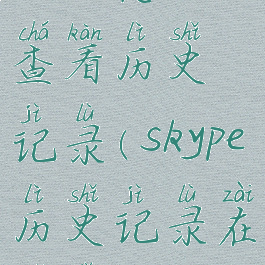 chá kàn lì shǐ
查看历史
jì lù
记录(skype
lì shǐ jì lù zài
历史记录在